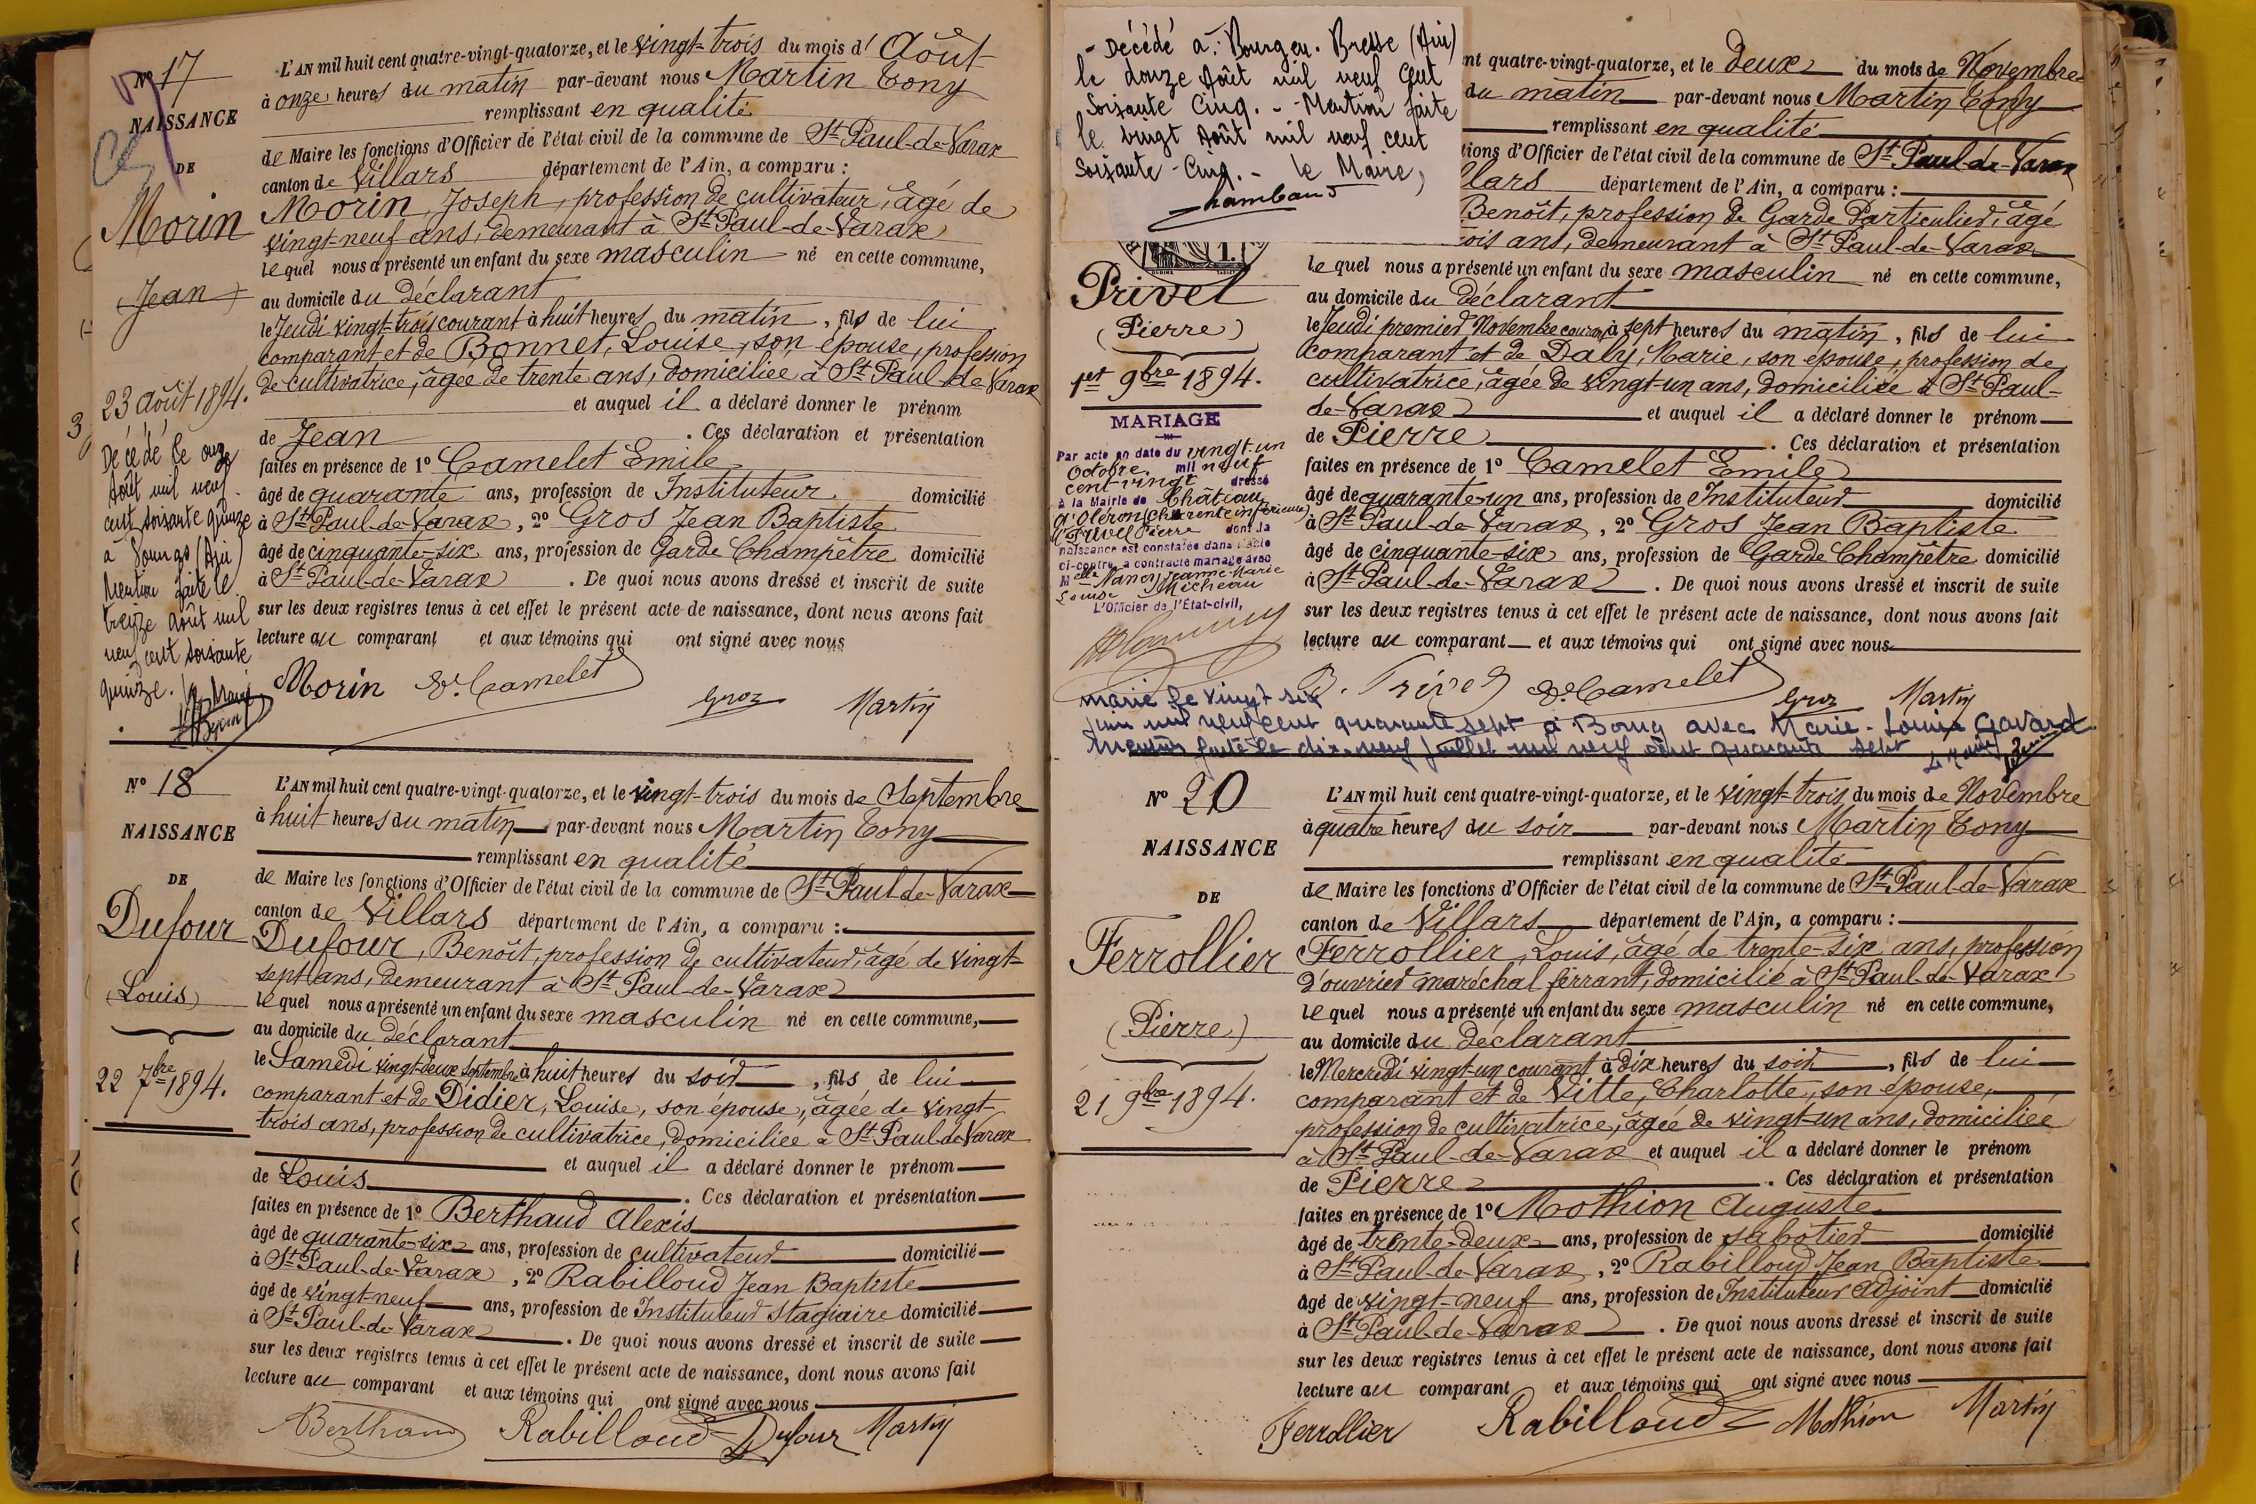 Nº 17
NAISSANCE
DE
Morin
(Jean)
23 Août 1894.
3
Décédé le onze
Août mil neuf
cent soixante quinze
à Bourg (Ain)
Mention faite le
treize Août mil
neuf cent soixante
quinze. Le Maire
L'AN mil huit cent quatre-vingt-quatorze, et le vingt-trois du mois d' Août
à onze heures du matin par-devant nous Martin Tony
remplissant en qualité
de Maire les fonctions d'Officier de l'état civil de la commune de St Paul-de-Varax
canton de Villars département de l'Ain, a comparu :
Morin, Joseph, profession de cultivateur, âgé de
vingt-neuf ans, demeurant à St Paul-de-Varax
lequel nous a présenté un enfant du sexe masculin né en cette commune,
au domicile du déclarant
le Jeudi vingt-trois courant à huit heures du matin, fils de lui
comparant et de Bonnet, Louise, son épouse, profession
de cultivatrice, âgée de trente ans, domiciliée à St Paul-de-Varax
et auquel il a déclaré donner le prénom
de Jean . Ces déclaration et présentation
faites en présence de 1º Camelet Emile
âgé de quarante ans, profession de Instituteur domicilié
à St Paul-de-Varax, 2º Gros Jean Baptiste
âgé de cinquante-six ans, profession de Garde Champêtre domicilié
à St Paul-de-Varax . De quoi nous avons dressé et inscrit de suite
sur les deux registres tenus à cet effet le présent acte de naissance, dont nous avons fait
lecture au comparant et aux témoins qui ont signé avec nous
Morin E. Camelet Gros Martin
Nº 18
NAISSANCE
DE
Dufour
(Louis)
22 7bre 1894.
L'AN mil huit cent quatre-vingt-quatorze, et le vingt-trois du mois de Septembre
à huit heures du matin par-devant nous Martin Tony
remplissant en qualité
de Maire les fonctions d'Officier de l'état civil de la commune de St Paul-de-Varax
canton de Villars département de l'Ain, a comparu :
Dufour, Benoît, profession de cultivateur, âgé de vingt-
sept ans, demeurant à St Paul-de-Varax
lequel nous a présenté un enfant du sexe masculin né en cette commune,
au domicile du déclarant
le Samedi vingt-deux Septembre à huit heures du soir, fils de lui
comparant et de Didier, Louise, son épouse, âgée de vingt-
trois ans, profession de cultivatrice, domiciliée à St Paul-de-Varax
et auquel il a déclaré donner le prénom
de Louis . Ces déclaration et présentation
faites en présence de 1º Berthaud Alexis
âgé de quarante-six ans, profession de cultivateur domicilié
à St Paul-de-Varax, 2º Rabilloud Jean Baptiste
âgé de vingt-neuf ans, profession de Instituteur Stagiaire domicilié
à St Paul-de-Varax . De quoi nous avons dressé et inscrit de suite
sur les deux registres tenus à cet effet le présent acte de naissance, dont nous avons fait
lecture au comparant et aux témoins qui ont signé avec nous
Berthaud Rabilloud Dufour Martin
- Décédé à Bourg en Bresse (Ain)
le douze Août mil neuf cent
Soixante Cinq. - Mention faite
le vingt Août mil neuf cent
Soixante-Cinq. - Le Maire,
Chambaud
Privel
(Pierre)
1er 9bre 1894.
MARIAGE
Par acte en date du vingt-un
Octobre mil neuf
cent vingt dressé
à la Mairie de Château
d'Oléron (Charente inférieure)
M. Privel Pierre dont la
naissance est constatée dans l'acte
ci-contre, a contracté mariage avec
Melle Nancy Jeanne Marie
Louise Micheau
L'Officier de l'État-civil,
nt quatre-vingt-quatorze, et le deux du mois de Novembre
du matin par-devant nous Martin Tony
remplissant en qualité
tions d'Officier de l'état civil de la commune de St Paul-de-Varax
llars département de l'Ain, a comparu :
Benoît, profession de Garde Particulier, âgé
ois ans, demeurant à St Paul-de-Varax
lequel nous a présenté un enfant du sexe masculin né en cette commune,
au domicile du déclarant
le Jeudi premier Novembre courant à sept heures du matin, fils de lui
comparant et de Daby, Marie, son épouse, profession de
cultivatrice, âgée de vingt-un ans, domiciliée à St Paul-
de-Varax et auquel il a déclaré donner le prénom
de Pierre . Ces déclaration et présentation
faites en présence de 1º Camelet Emile
âgé de quarante-un ans, profession de Instituteur domicilié
à St Paul-de-Varax, 2º Gros Jean Baptiste
âgé de cinquante-six ans, profession de Garde Champêtre domicilié
à St Paul-de-Varax . De quoi nous avons dressé et inscrit de suite
sur les deux registres tenus à cet effet le présent acte de naissance, dont nous avons fait
lecture au comparant et aux témoins qui ont signé avec nous
B. Privel E. Camelet Gros Martin
Marié le vingt six
juin mil neuf cent quarante sept à Bourg avec Marie-Louise Gavard
Mention faite le dix-neuf juillet mil neuf cent quarante sept Le Maire
Nº 20
NAISSANCE
DE
Ferrollier
(Pierre)
21 9bre 1894.
L'AN mil huit cent quatre-vingt-quatorze, et le vingt-trois du mois de Novembre
à quatre heures du soir par-devant nous Martin Tony
remplissant en qualité
de Maire les fonctions d'Officier de l'état civil de la commune de St Paul-de-Varax
canton de Villars département de l'Ain, a comparu :
Ferrollier, Louis, âgé de trente-six ans, profession
d'ouvrier maréchal ferrant, domicilié à St Paul-de-Varax
lequel nous a présenté un enfant du sexe masculin né en cette commune,
au domicile du déclarant
le Mercredi vingt-un courant à dix heures du soir, fils de lui
comparant et de Vitte, Charlotte, son épouse,
profession de cultivatrice, âgée de vingt-un ans, domiciliée
à St Paul-de-Varax et auquel il a déclaré donner le prénom
de Pierre . Ces déclaration et présentation
faites en présence de 1º Mothion Auguste
âgé de trente-deux ans, profession de sabotier domicilié
à St Paul-de-Varax, 2º Rabilloud Jean Baptiste
âgé de vingt-neuf ans, profession de Instituteur Adjoint domicilié
à St Paul-de-Varax . De quoi nous avons dressé et inscrit de suite
sur les deux registres tenus à cet effet le présent acte de naissance, dont nous avons fait
lecture au comparant et aux témoins qui ont signé avec nous
Ferrollier Rabilloud Mothion Martin